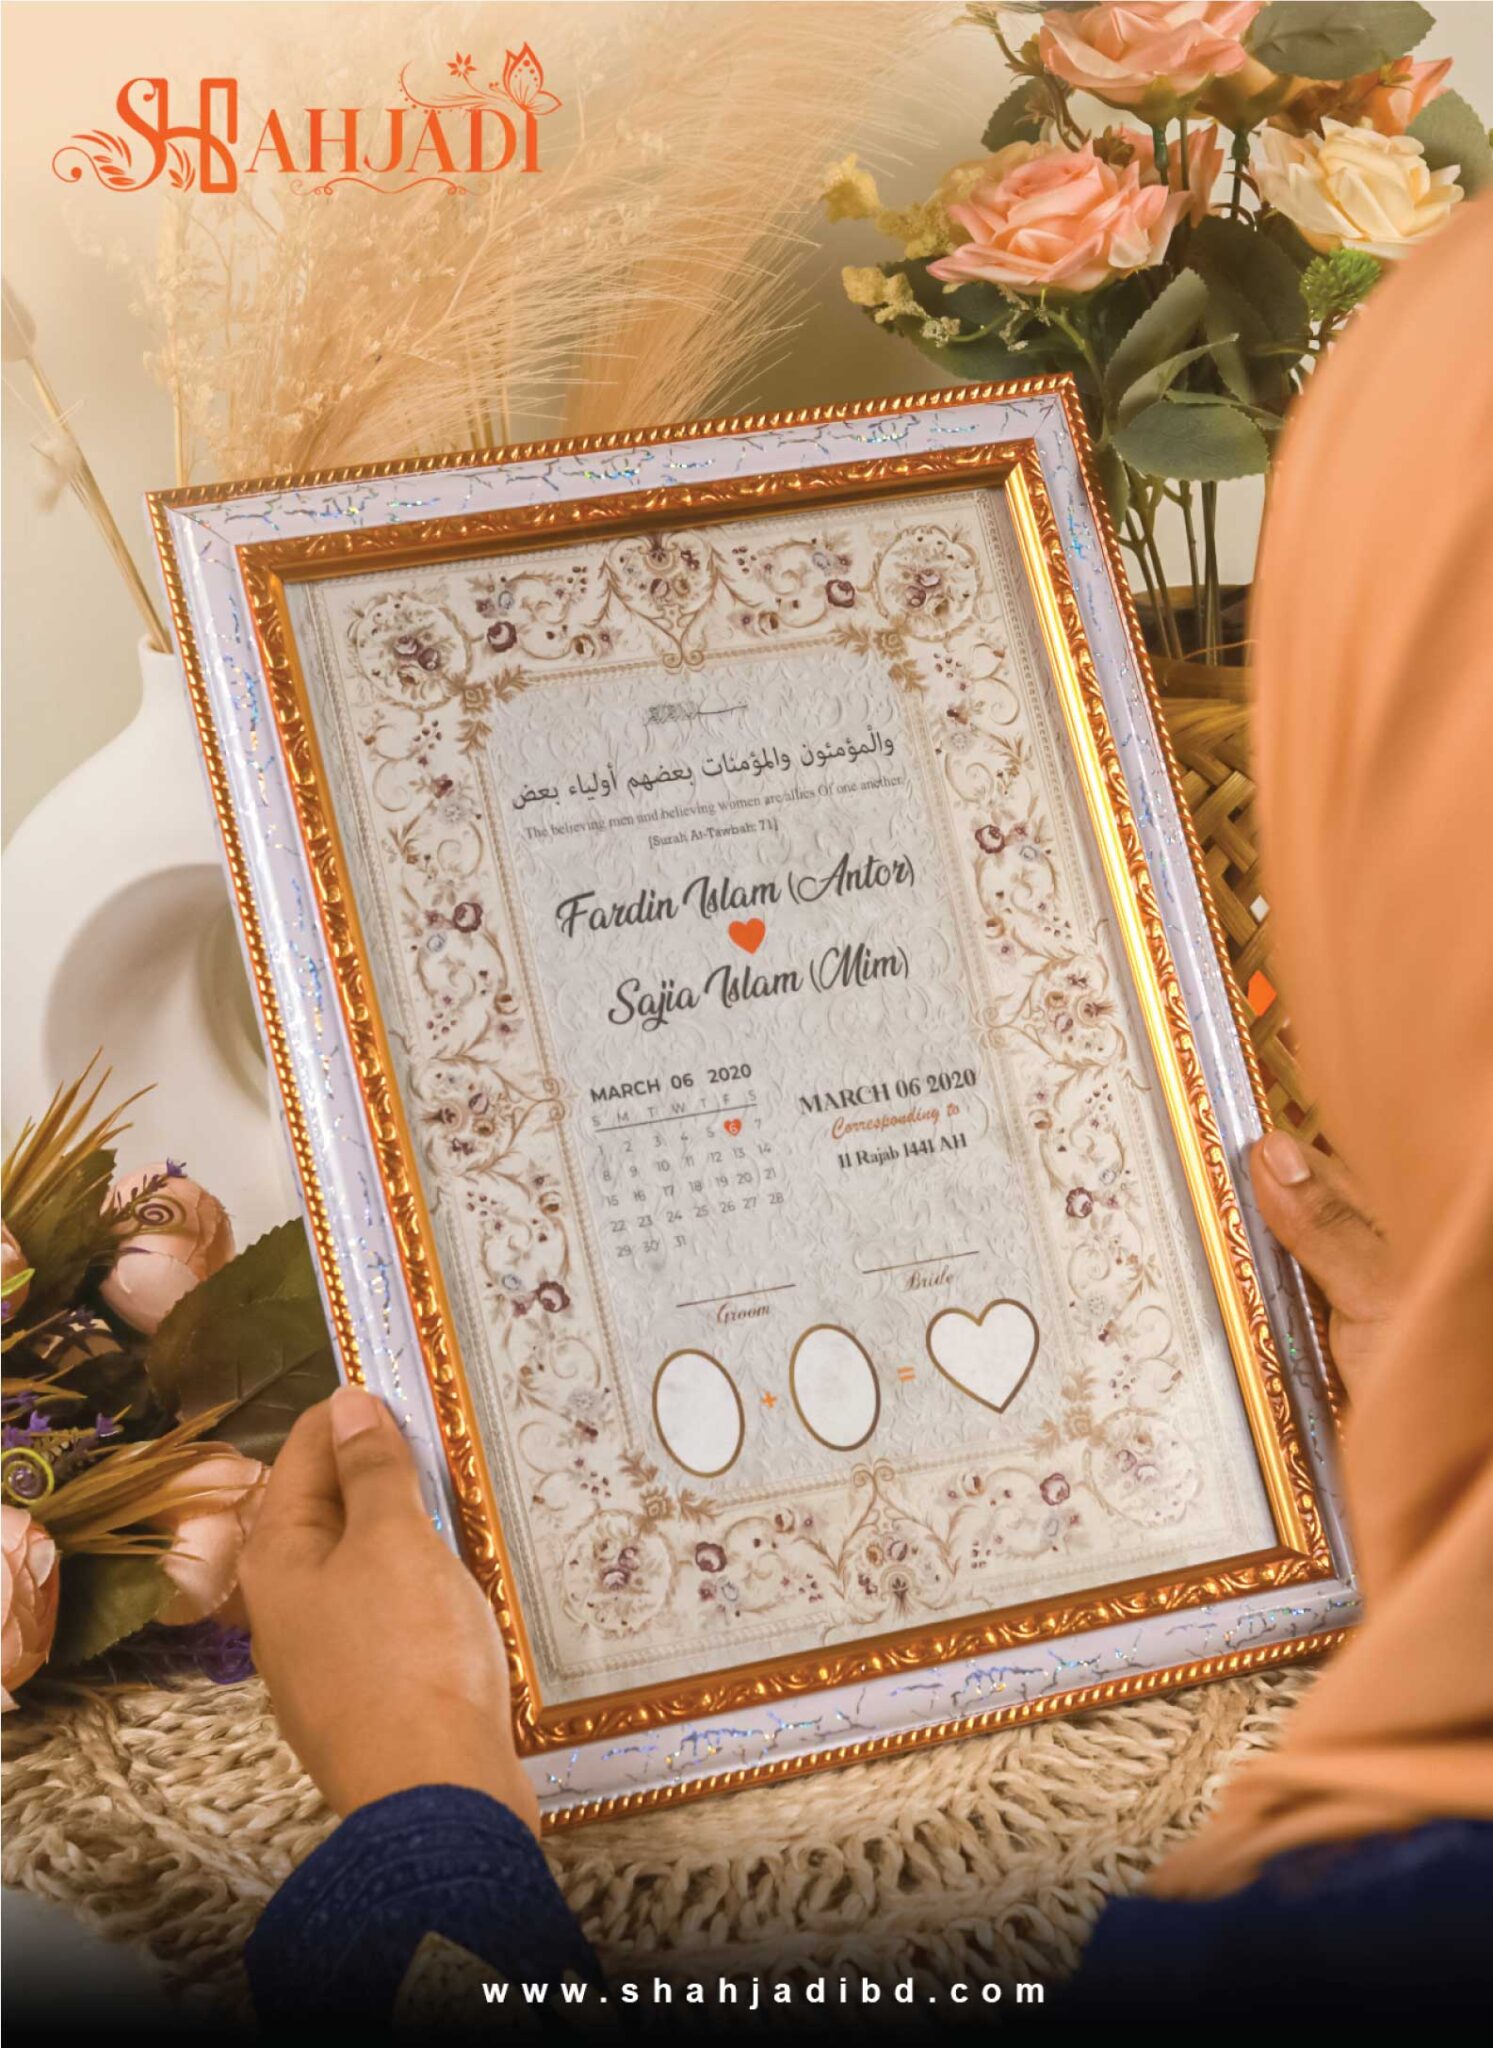 SHAHJADI
والْمؤمنون والمؤمنات بعضهم أولياء بعض
The believing men and believing women are allies Of one another
[Surah At-Tawbah: 71]
Fardin Islam (Antor)
Sajia Islam (Mim)
MARCH 06 2020
S M T W T F S
1 2 3 4 5 6 7
8 9 10 11 12 13 14
15 16 17 18 19 20 21
22 23 24 25 26 27 28
29 30 31
MARCH 06 2020
Corresponding to
11 Rajab 1441 AH
Groom
Bride
+ =
www.shahjadibd.com